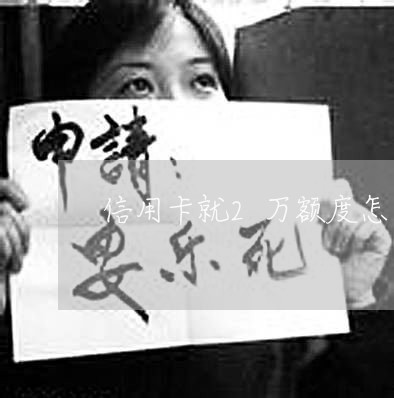 申請：
信用卡就2 万额度怎
安乐死